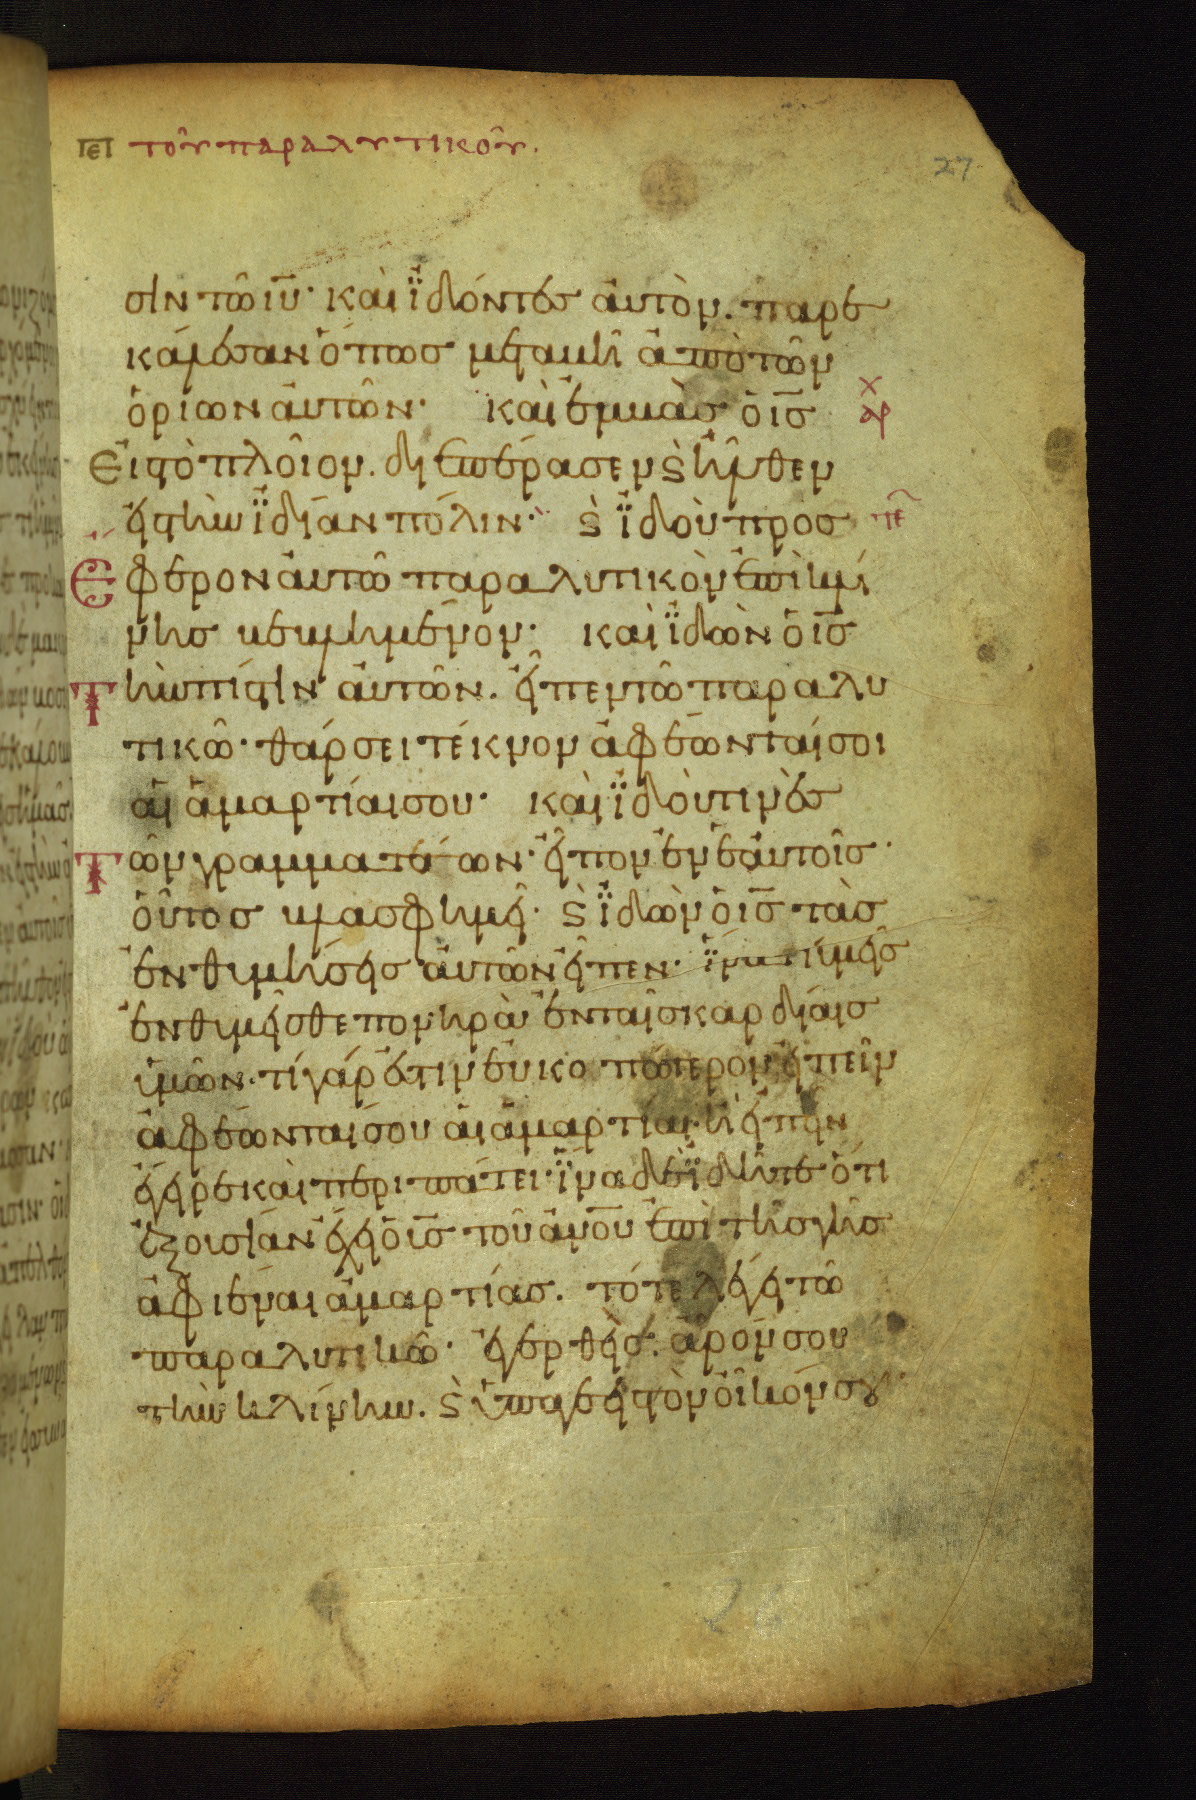 ιει τοῦ παραλυτικοῦ.
27
σιν τῶ ιυ· καὶ ἰδόντες αὐτὸν. παρε
κάλεσαν ὅπως μεταβῆ ἀπὸ τῶν
ὁρίων αὐτῶν· καὶ ἐμβὰς ὁ ις
Εἰς τὸ πλοῖον. διεπέρασεν καὶ ἦλθεν
εἰς τὴν ἰδίαν πόλιν· καὶ ἰδοὺ προσ
Εφερον αὐτῶ παραλυτικὸν ἐπὶ κλί
νης βεβλημένον· καὶ ἰδὼν ὁ ις
Τὴν πίστιν αὐτῶν. εἶπεν τῶ παραλυ
τικῶ· θάρσει τέκνον ἀφέωνταί σοι
αἱ ἁμαρτίαι σου· καὶ ἰδού τινὲς
Τῶν γραμματέων· εἶπον ἐν ἑαυτοῖς·
οὗτος βλασφημεῖ· καὶ ἰδὼν ὁ ις τὰς
ἐνθυμήσεις αὐτῶν εἶπεν· ἵνα τί ὑμεῖς
ἐνθυμεῖσθε πονηρὰ ἐν ταῖς καρδίαις
ὑμῶν· τί γάρ ἐστιν εὐκοπώτερον εἰπεῖν
ἀφέωνταί σου αἱ ἁμαρτίαι· ἢ εἰπεῖν
ἔγειρε καὶ περιπάτει· ἵνα δὲ ἰδῆτε ὅτι
ἐξουσίαν ἔχει ὁ υἱς τοῦ ανου ἐπὶ τῆς γῆς
ἀφιέναι ἁμαρτίας. τότε λέγει τῶ
παραλυτικῶ· ἐγερθεὶς. ἆρόν σου
τὴν κλίνην. καὶ ὕπαγε εἰς τὸν οἶκόν σου·